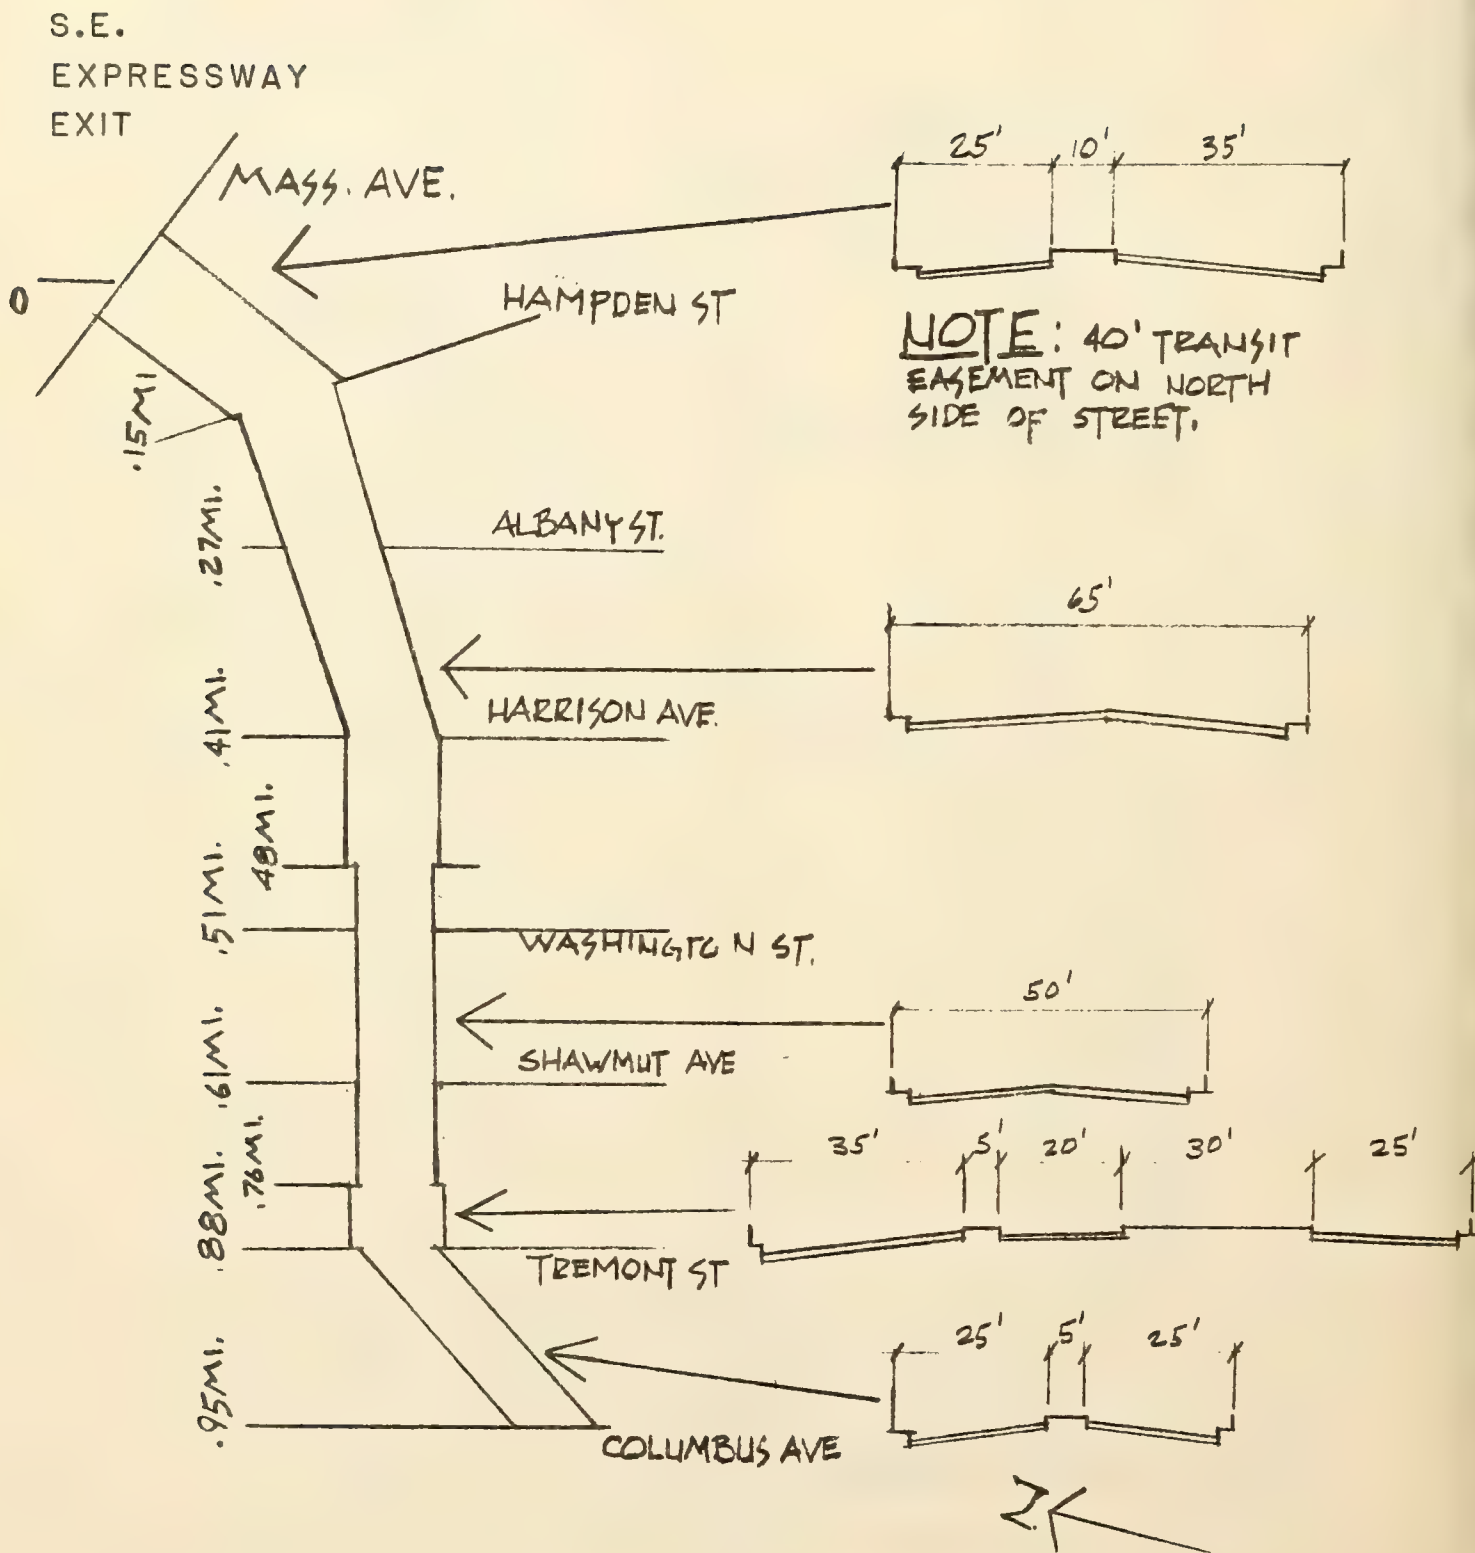 S.E.
EXPRESSWAY
EXIT
MASS. AVE.
25' 10' 35'
0
HAMPDEN ST
NOTE: 40' TRANSIT
EASEMENT ON NORTH
SIDE OF STREET.
.15MI
ALBANY ST.
.27MI.
65'
HARRISON AVE.
.41MI.
.48MI.
.51MI.
WASHINGTON ST.
50'
SHAWMUT AVE
.61MI.
.76MI.
35' 5' 20' 30' 25'
.88MI.
TREMONT ST
25' 5' 25'
.95MI.
COLUMBUS AVE
N